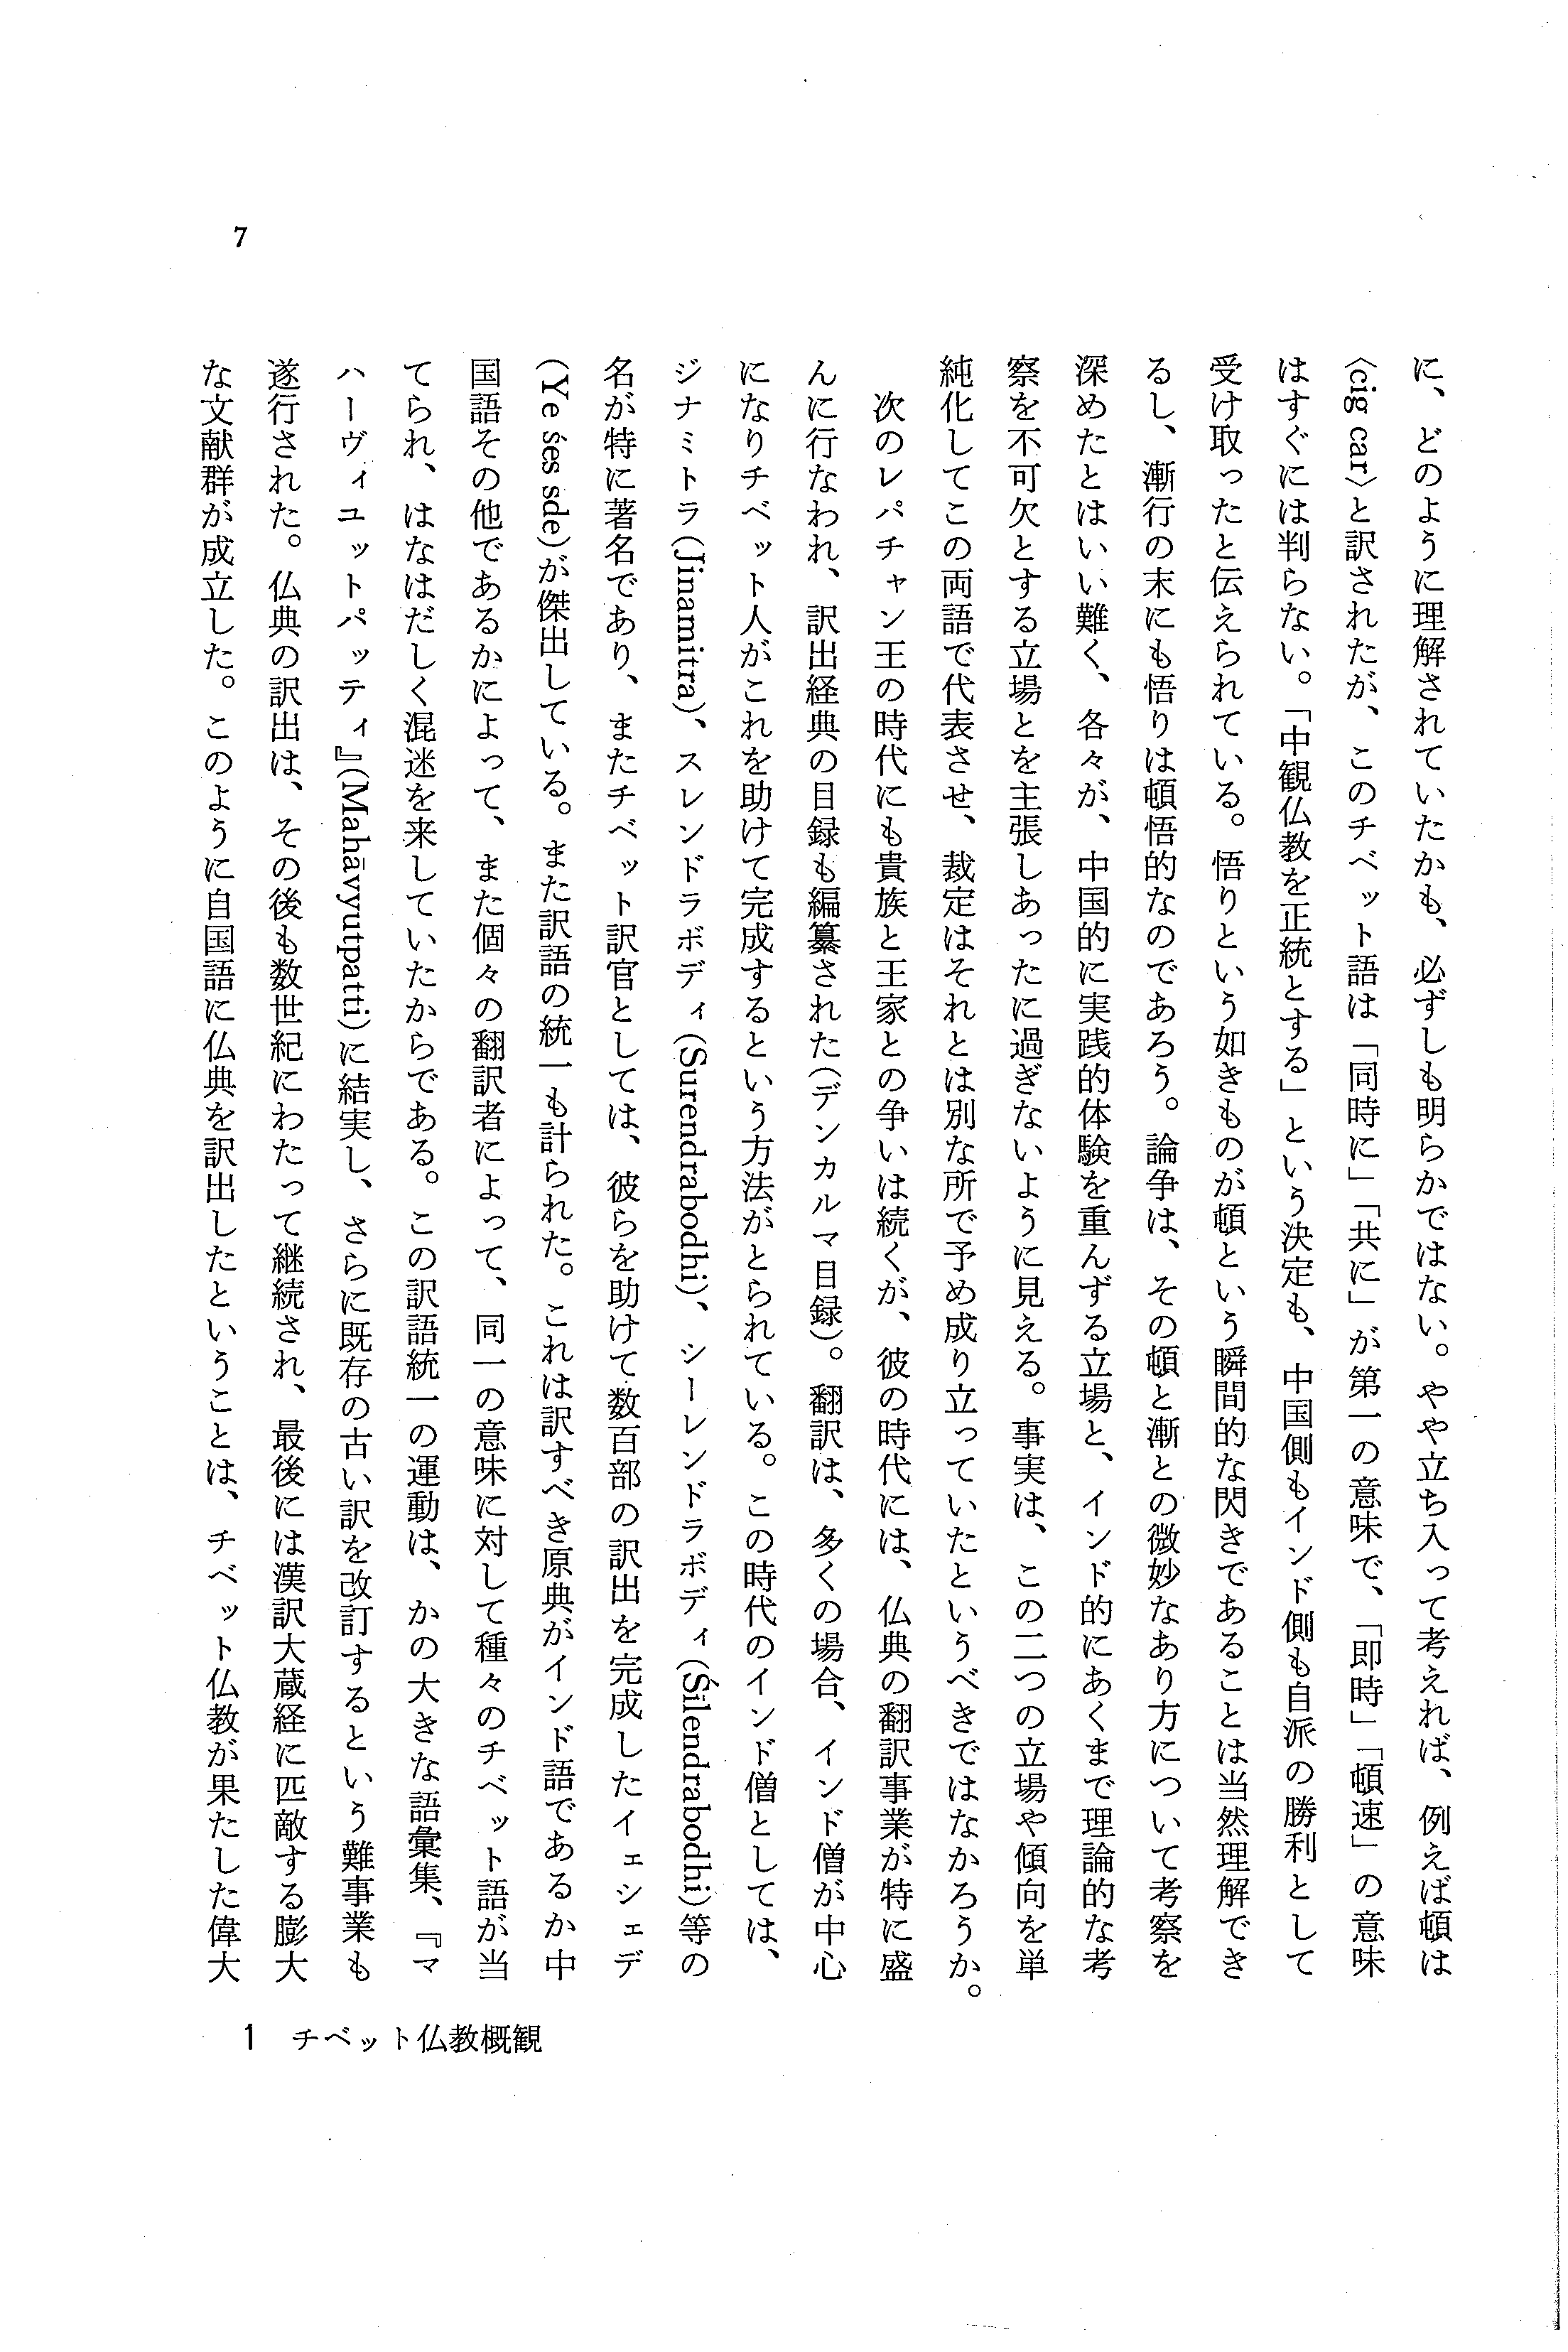 7
に、どのように理解されていたかも、必ずしも明らかではない。やや立ち入って考えれば、例えば頓は
〈cig car〉と訳されたが、このチベット語は「同時に」「共に」が第一の意味で、「即時」「頓速」の意味
はすぐには判らない。「中観仏教を正統とする」という決定も、中国側もインド側も自派の勝利として
受け取ったと伝えられている。悟りという如きものが頓という瞬間的な閃きであることは当然理解でき
るし、漸行の末にも悟りは頓悟的なのであろう。論争は、その頓と漸との微妙なあり方について考察を
深めたとはいい難く、各々が、中国的に実践的体験を重んずる立場と、インド的にあくまで理論的な考
察を不可欠とする立場とを主張しあったに過ぎないように見える。事実は、この二つの立場や傾向を単
純化してこの両語で代表させ、裁定はそれとは別な所で予め成り立っていたというべきではなかろうか。
次のレパチャン王の時代にも貴族と王家との争いは続くが、彼の時代には、仏典の翻訳事業が特に盛
んに行なわれ、訳出経典の目録も編纂された(デンカルマ目録)。翻訳は、多くの場合、インド僧が中心
になりチベット人がこれを助けて完成するという方法がとられている。この時代のインド僧としては、
ジナミトラ(Jinamitra)、スレンドラボディ(Surendrabodhi)、シーレンドラボディ(Śilendrabodhi)等の
名が特に著名であり、またチベット訳官としては、彼らを助けて数百部の訳出を完成したイェシェデ
(Ye śes sde)が傑出している。また訳語の統一も計られた。これは訳すべき原典がインド語であるか中
国語その他であるかによって、また個々の翻訳者によって、同一の意味に対して種々のチベット語が当
てられ、はなはだしく混迷を来していたからである。この訳語統一の運動は、かの大きな語彙集、『マ
ハーヴィユットパッティ』(Mahāvyutpatti)に結実し、さらに既存の古い訳を改訂するという難事業も
遂行された。仏典の訳出は、その後も数世紀にわたって継続され、最後には漢訳大蔵経に匹敵する膨大
な文献群が成立した。このように自国語に仏典を訳出したということは、チベット仏教が果たした偉大
1 チベット仏教概観